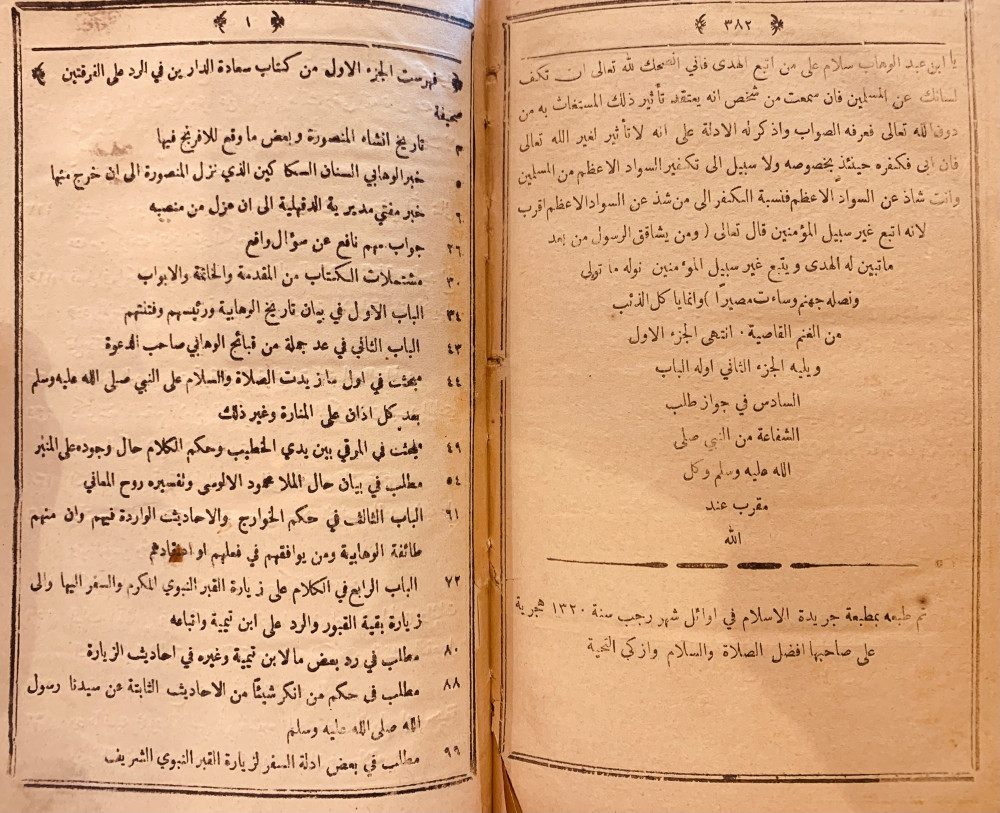 ٣٨٢
يا ابن عبد الوهاب سلام على من اتبع الهدى فاني انصحك لله تعالى ان تكف
لسانك عن المسلمين فان سمعت من شخص انه يعتقد تأثير ذلك المستغاث به من
دون الله تعالى فعرفه الصواب واذكر له الادلة على انه لا تأثير لغير الله تعالى
فان ابى فكفره حينئذ بخصوصه ولا سبيل الى تكفير السواد الاعظم من المسلمين
وانت شاذ عن السواد الاعظم فنسبة الكفر الى من شذ عن السواد الاعظم اقرب
لانه اتبع غير سبيل المؤمنين قال تعالى ( ومن يشاقق الرسول من بعد
ماتبين له الهدى ويتبع غير سبيل المؤمنين نوله ما تولى
ونصله جهنم وساءت مصيرًا ) وانما يأكل الذئب
من الغنم القاصية . انتهى الجزء الاول
ويليه الجزء الثاني اوله الباب
السادس في جواز طلب
الشفاعة من النبي صلى
الله عليه وسلم وكل
مقرب عند
الله
تم طبعه بمطبعة جريدة الاسلام في اوائل شهر رجب سنة ١٣٢٠ هجرية
على صاحبها افضل الصلاة والسلام وازكى التحية
١
فهرست الجزء الاول من كتاب سعادة الدارين في الرد على الفرقتين
صحيفة
٣ تاريخ انشاء المنصورة وبعض ما وقع للافرنج فيها
٥ خبر الوهابي السنان السكاكين الذي نزل المنصورة الى ان خرج منها
٦ خبر مفتي مديرية الدقهلية الى ان عزل من منصبه
٢٦ جواب مهم نافع عن سؤال واقع
٣٠ مشتملات الكتاب من المقدمة والخاتمة والابواب
٣٤ الباب الاول في بيان تاريخ الوهابية ورئيسهم وفتنتهم
٤٣ الباب الثاني في عد جملة من قبائح الوهابي صاحب الدعوة
٤٤ مبحث في اول ما زيدت الصلاة والسلام على النبي صلى الله عليه وسلم
بعد كل اذان على المنارة وغير ذلك
٤٩ مبحث في المرقي بين يدي الخطيب وحكم الكلام حال وجوده على المنبر
٥٤ مطلب في بيان حال الملا محمود الالوسى وتفسيره روح المعاني
٦١ الباب الثالث في حكم الخوارج والاحاديث الواردة فيهم وان منهم
طائفة الوهابية ومن يوافقهم في فعلهم او اعتقادهم
٧٢ الباب الرابع في الكلام على زيارة القبر النبوي المكرم والسفر اليها والى
زيارة بقية القبور والرد على ابن تيمية واتباعه
٨٠ مطلب في رد بعض ما لابن تيمية وغيره في احاديث الزيارة
٨٨ مطلب في حكم من انكر شيئًا من الاحاديث الثابتة عن سيدنا رسول
الله صلى الله عليه وسلم
٩٩ مطلب في بعض ادلة السفر لزيارة القبر النبوي الشريف